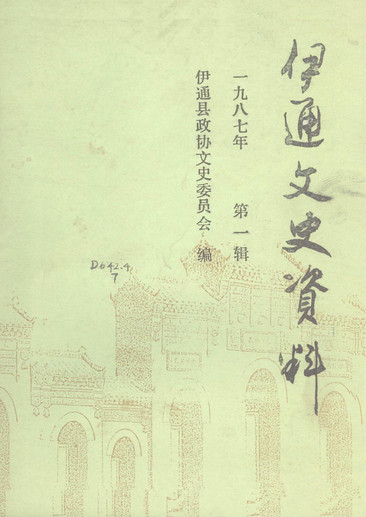 伊通文史資料
一九八七年 第一辑
伊通县政协文史委员会 编
D642.4
7